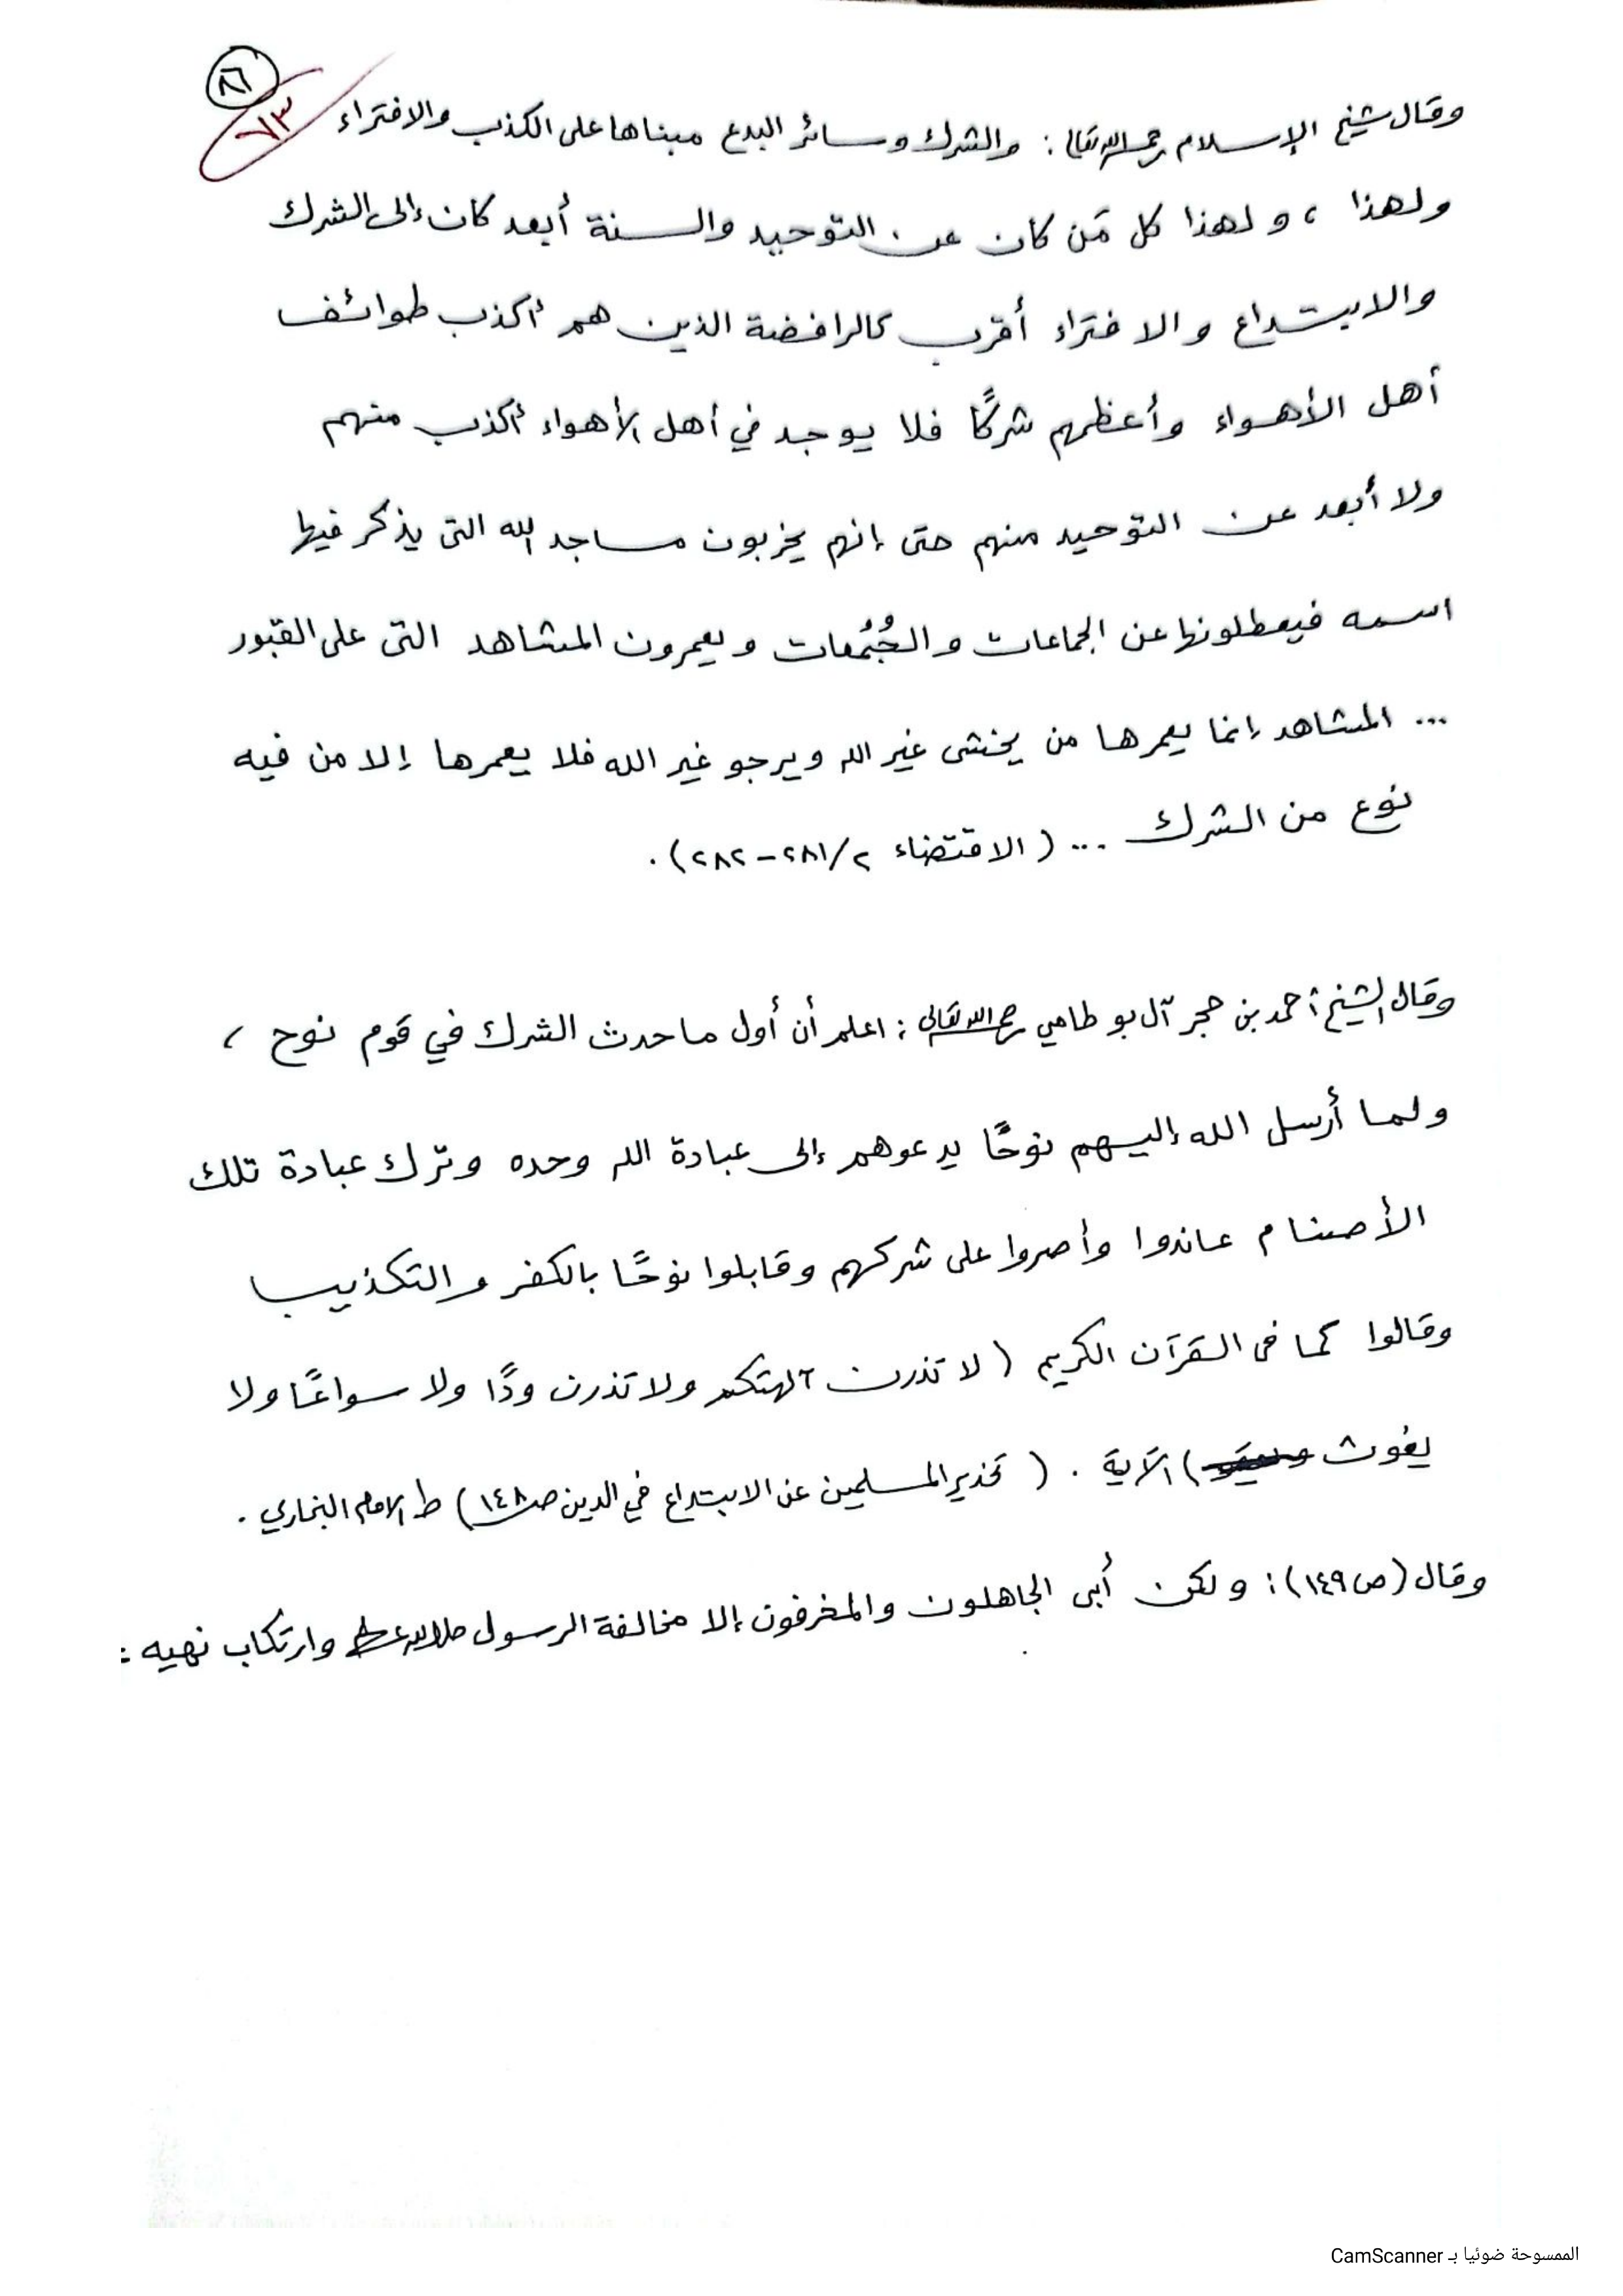 ٨٦
٧٣
وقال شيخ الإسلام رحمه الله تعالى : والشرك وسائر البدع مبناها على الكذب والافتراء
ولهذا ، ولهذا كل مَن كان عن التوحيد والسنة أبعد كان إلى الشرك
والابتداع والافتراء أقرب كالرافضة الذين هم أكذب طوائف
أهل الأهواء وأعظمهم شركًا فلا يوجد في أهل الأهواء أكذب منهم
ولا أبعد عن التوحيد منهم حتى إنهم يخربون مساجد الله التى يذكر فيها
اسمه فيعطلونها عن الجماعات والجُمُعات ويعمرون المشاهد التى على القبور
... المشاهد إنما يعمرها من يخشى غير الله ويرجو غير الله فلا يعمرها إلا من فيه
نوع من الشرك ... ( الاقتضاء ٢/ ٢٨١ - ٢٨٢ ) .
وقال الشيخ أحمد بن حجر آل بو طامي رحمه الله تعالى : اعلم أن أول ما حدث الشرك في قوم نوح ،
ولما أرسل الله إليهم نوحًا يدعوهم إلى عبادة الله وحده وترك عبادة تلك
الأصنام عاندوا وأصروا على شركهم وقابلوا نوحًا بالكفر والتكذيب
وقالوا كما فى القرآن الكريم ( لا تذرن آلهتكم ولا تذرن ودًّا ولا سواعًا ولا
يغوث ) الآية . ( تحذير المسلمين عن الابتداع في الدين ص ١٤٨ ) ط الإمام البخاري .
وقال ( ص ١٤٩ ) : ولكن أبى الجاهلون والمخرفون إلا مخالفة الرسول صلى الله عليه وسلم وارتكاب نهيه :
الممسوحة ضوئيا بـ CamScanner